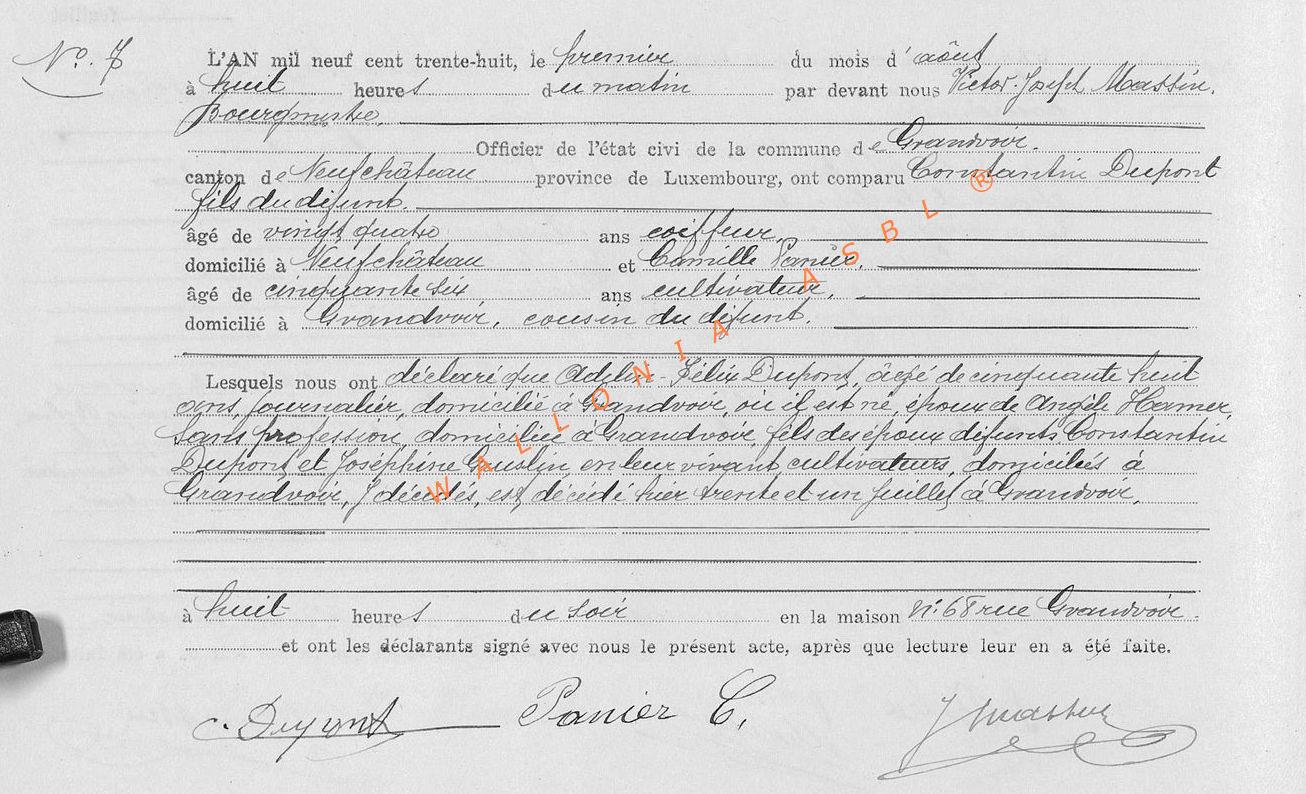 No. 7
L'AN mil neuf cent trente-huit, le premier du mois d'août
à huit heures du matin par devant nous Victor-Joseph Massin,
Bourgmestre,
Officier de l'état civi de la commune de Grandvoir.
canton de Neufchâteau province de Luxembourg, ont comparu Constantin Dupont
fils du défunt.
âgé de vingt quatre ans coiffeur,
domicilié à Neufchâteau et Camille Panier,
âgé de cinquante six ans cultivateur,
domicilié à Grandvoir, cousin du défunt.
Lesquels nous ont déclaré que Adelin-Félix Dupont, âgé de cinquante huit
ans, journalier, domicilié à Grandvoir, où il est né, époux de Angèle Hamer,
sans profession, domiciliée à Grandvoir fils des époux défunts Constantin
Dupont et Joséphine Guslin en leur vivant cultivateurs, domiciliés à
Grandvoir, y décédés, est décédé hier trente et un juillet à Grandvoir,
à huit heures du soir en la maison n: 68 rue Grandvoir.
et ont les déclarants signé avec nous le présent acte, après que lecture leur en a été faite.
C. Dupont Panier C. J Massin
WALLONIA ASBL ®